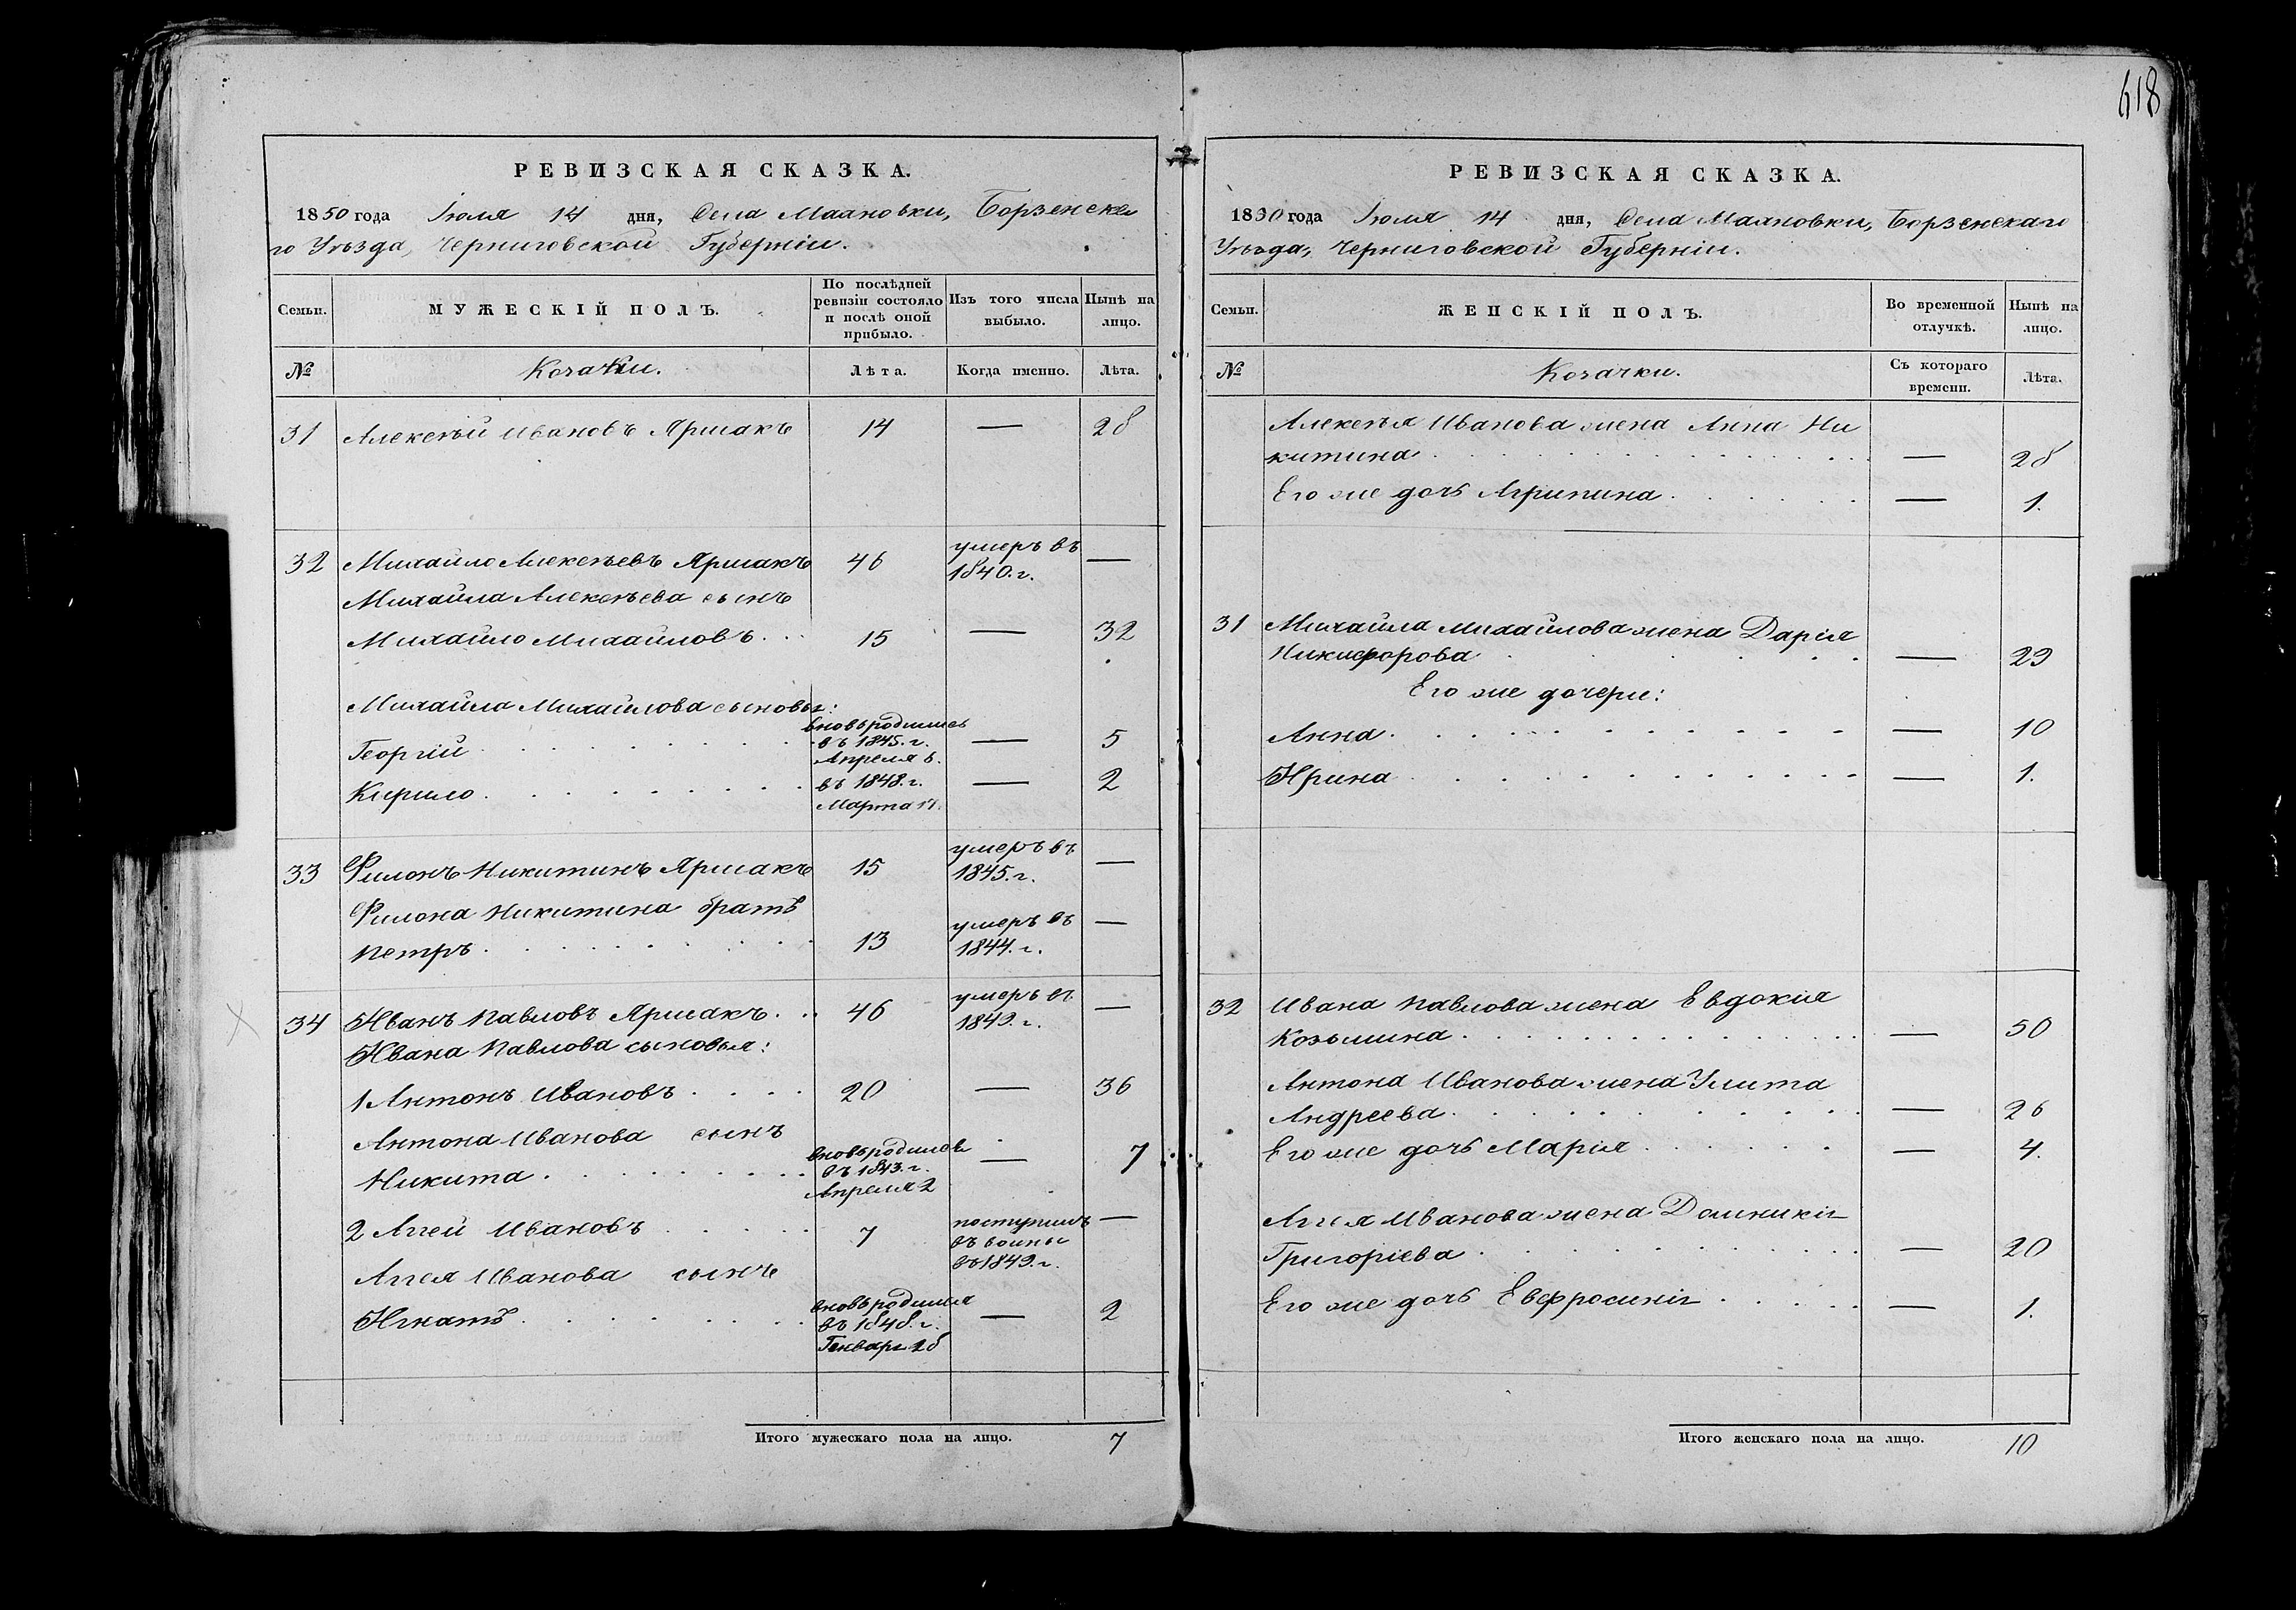 618
РЕВИЗСКАЯ СКАЗКА.
1850 года Іюля 14 дня, Села Маяновки, Борзенска
го Уѣзда, Черниговской Губерніи.
Семьи. МУЖЕСКІЙ ПОЛЪ. По послѣдней ревизіи состояло и послѣ оной прибыло. Изъ того числа выбыло. Нынѣ на лицо.
№ Козачки. Лѣта. Когда именно. Лѣта.
31 Алексѣй Ивановъ Ярмакъ 14 — 28
32 Михайло Алексѣевъ Ярмакъ 46 умеръ въ 1840. г. —
Михайла Алексѣева сынъ
Михайло Михайловъ . . . 15 — 32
Михайла Михайлова сыновья:
Георгій . . . вновьродились въ 1845. г. Апреля 6. — 5
Кирило . . . въ 1848. г. Марта — 2
33 Филонъ Никитинъ Ярмакъ 15 умеръ въ 1845. г. —
Филона Никитина братъ
Петръ . . . 13 умеръ въ 1844. г. —
34 Иванъ Павловъ Ярмакъ . . 46 умеръ въ 1849. г. —
Ивана Павлова сыновья:
1 Антонъ Ивановъ . . . . 20 — 36
Антона Иванова сынъ
Никита . . . вновьродился въ 1843. г. Апреля 2 — 7
2 Аггей Ивановъ . . . 7 поступилъ въ воины въ 1849. г. —
Аггея Иванова сынъ
Игнатъ . . . вновьродился въ 1848. г. Генваря 28 — 2
Итого мужескаго пола на лицо. 7
РЕВИЗСКАЯ СКАЗКА.
1850 года Іюля 14 дня, Села Маяновки, Борзенскаго
Уѣзда, Черниговской Губерніи.
Семьи. ЖЕНСКІЙ ПОЛЪ. Во временной отлучкѣ. Нынѣ на лицо.
№ Козачки. Съ котораго времени. Лѣта.
Алексѣя Иванова жена Анна Ни
китина . . . — 28
Его же дочь Агрипина . . . — 1.
31 Михайла Михайлова жена Дарія
Никифорова . . . — 29
Его же дочери:
Анна . . . — 10
Ирина . . . — 1.
32 Ивана Павлова жена Евдокія
Козьмина . . . — 50
Антона Иванова жена Улита
Андреева . . . — 26
Его же дочь Марія . . . — 4.
Аггея Иванова жена Домникія
Григоріева . . . — 20
Его же дочь Евфросинія . . . — 1.
Итого женскаго пола на лицо. 10